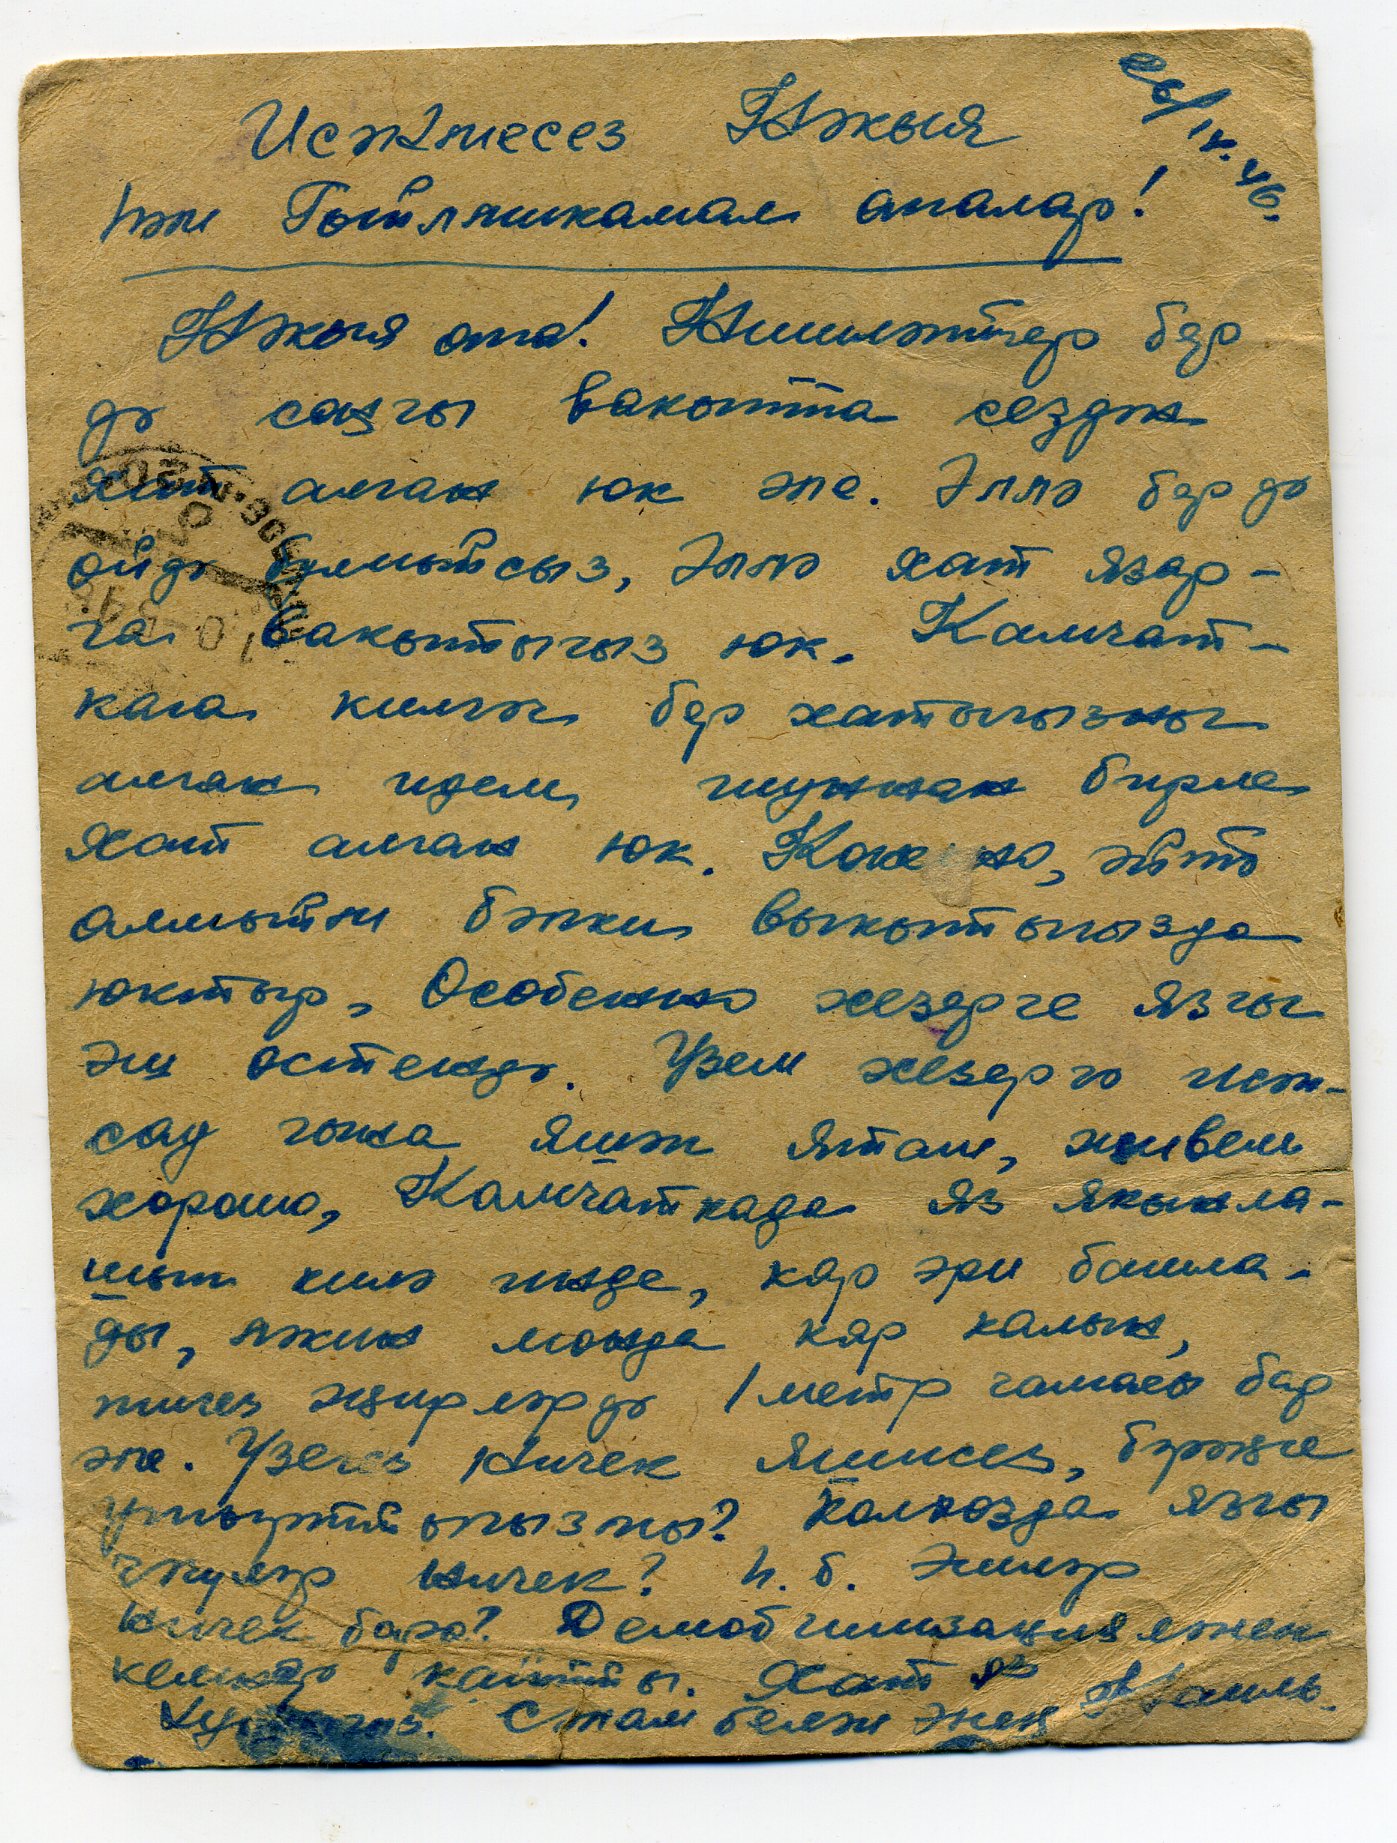 26/IV.46.
Исәнмесез Нәҗыя
һәм Гыйльмикамал апалар!
Нәҗыя апа! Ншиләйтер бер
дә соңгы вакытта сездән
хат алган юк әле. Әллә бер дә
өйдә булмыйсыз, әллә хат язар-
га вакытыгыз юк. Камчат-
кага килгәч бер хатыгызны
алган идем, шуннан бирле
хат алган юк. Конечно, әйтә
алмыйм бәлки выкытыгызда
юктыр, Особенно хезерге язгы
эш өстендә. Үзем хезергә исән-
сау гына яшәп ятам, живем
хорошо, Камчаткада яз якынла-
шып килә инде, кар эри башла-
ды, ләкин монда кар калын,
тигез җирләрдә 1 метр чамасы бар
әле. Үзегез ничек яшисез, бәрәңге
утыртдыгызмы? Колхозда язгы
чәчүләр ничек? һ.б. эшләр
ничек бара? Демобилизация белән
кемнәр кайтты. Хат яз
Сәлам белән энең Наиль.